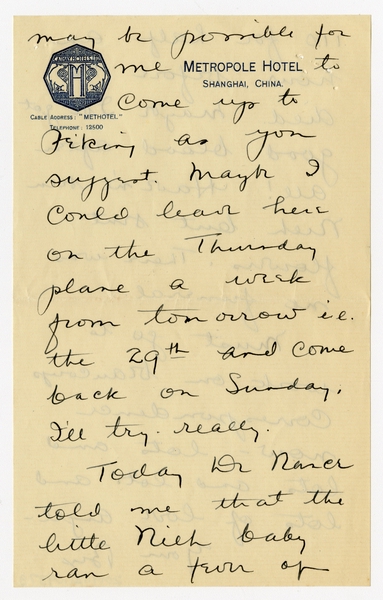 may be possible for
CATHAY HOTELS, LTD.
me METROPOLE HOTEL to
SHANGHAI, CHINA.
come up to
CABLE ADDRESS: "METHOTEL"
TELEPHONE: 12500
Peking as you
suggest. Maybe I
could leave here
on the Thursday
plane a week
from tomorrow i.e.
the 29th and come
back on Sunday.
I'll try. really.
Today Dr Nance
told me that the
little Nieh baby
ran a fever of